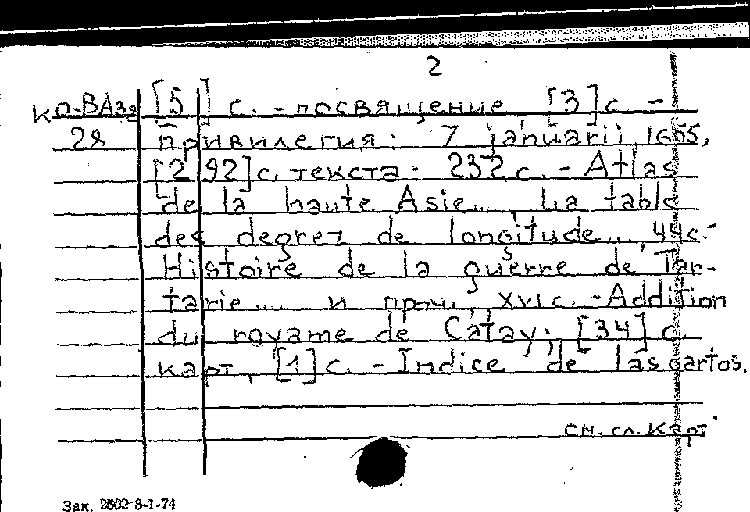 2
Ко-ВАЗя [5] с. - посвящение [3] с -
28 привилегия: 7 januarii 1655,
[292] с. текста: 232 с. - Atlas
de la haute Asie... La table
des degrez de longitude.., 44с.-
Histoire de la guerre de Tar-
tarie... и проч., XVI с. - Addition
du royame de Catay; [34] с.
карт, [1] с. - Indice de las cartos.
см. сл. карт
Зак. 2602-8-1-74